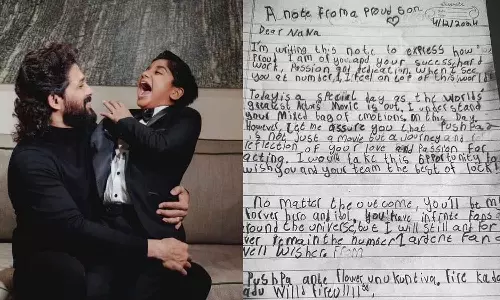 A note from a proud son
4/12/2024
Dear Nana
I'm writing this note to express how
Proud I am of you and your success, hard
work, Passion and dedication. When I see
you at number 1, I feel on top of the world
Today is a special day as the worlds
greatest Actors Movie is out. I understand
your Mixed bag of emotions on this Day
However, let me assure you that Pushpa
is not just a Movie but a journey and
reflection of your love and Passion for
acting. I would take this opportunity to
wish you and your team the best of lock!
No matter the outcome, you'll be m
forver hero and idol. you have infinte fans
around the universe, but I will still
ver remain the number 1 ardent fan
well wisher
Pushpa ante flower
Fire
Wild fire!!!!